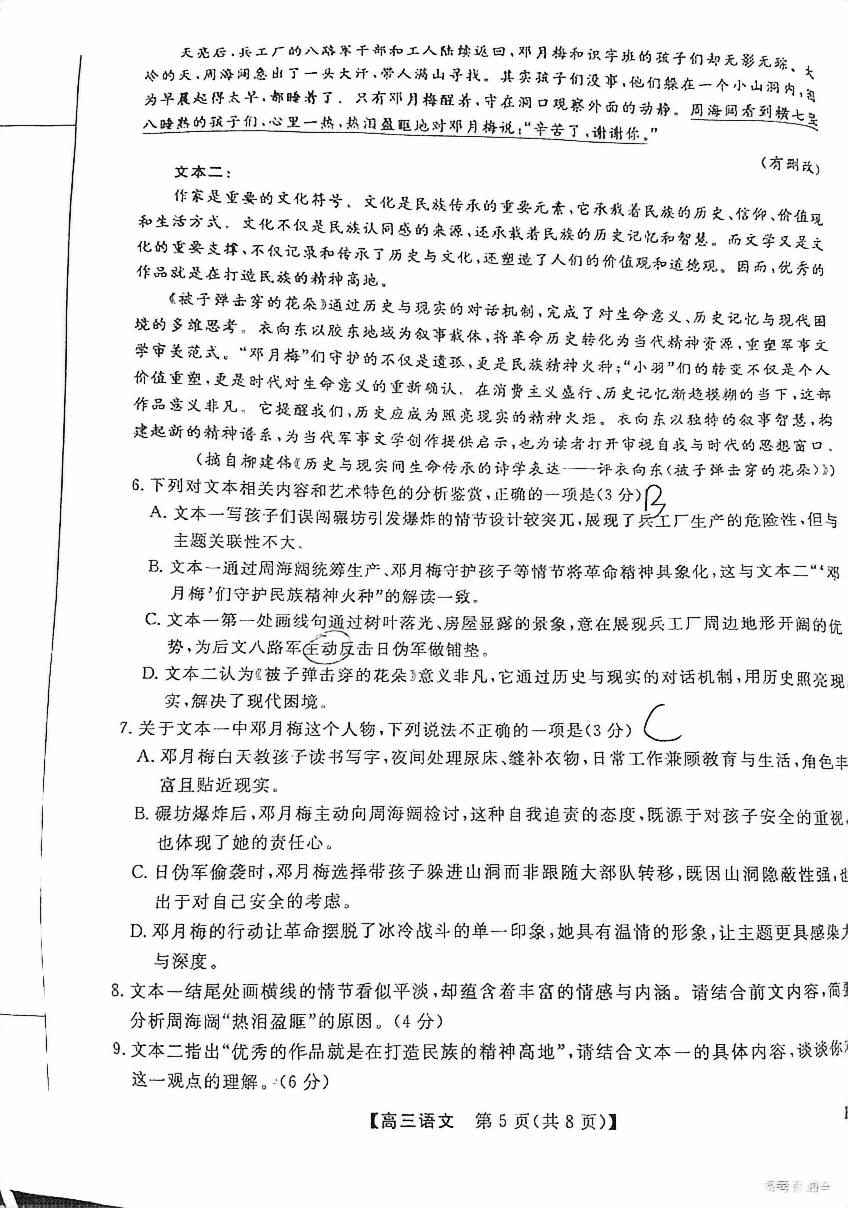 天亮后,兵工厂的八路军干部和工人陆续返回,邓月梅和识字班的孩子们却无影无踪、大
冷的天,周海阔急出了一头大汗,带人满山寻找。其实孩子们没事,他们躲在一个小山洞内,因
为早晨起得太早,都睡着了。只有邓月梅醒着,守在洞口观察外面的动静。周海阔看到横七竖
八睡熟的孩子们、心里一热,热泪盈眶地对邓月梅说:“辛苦了,谢谢你。”
(有删改)
文本二:
作家是重要的文化符号。文化是民族传承的重要元素,它承载着民族的历史、信仰、价值观
和生活方式。文化不仅是民族认同感的来源,还承载着民族的历史记忆和智慧。而文学又是文
化的重要支撑,不仅记录和传承了历史与文化,还塑造了人们的价值观和道德观。因而,优秀的
作品就是在打造民族的精神高地。
《被子弹击穿的花朵》通过历史与现实的对话机制,完成了对生命意义、历史记忆与现代困
境的多维思考。衣向东以胶东地域为叙事载体,将革命历史转化为当代精神资源,重塑军事文
学审美范式。“邓月梅”们守护的不仅是遗孤,更是民族精神火种;“小羽”们的转变不仅是个人
价值重塑,更是时代对生命意义的重新确认。在消费主义盛行、历史记忆渐趋模糊的当下,这部
作品意义非凡。它提醒我们,历史应成为照亮现实的精神火炬。衣向东以独特的叙事智慧,构
建起新的精神谱系,为当代军事文学创作提供启示,也为读者打开审视自我与时代的思想窗口。
(摘自柳建伟《历史与现实间生命传承的诗学表达——评衣向东〈被子弹击穿的花朵〉》)
6. 下列对文本相关内容和艺术特色的分析鉴赏,正确的一项是(3分) B
A. 文本一写孩子们误闯碾坊引发爆炸的情节设计较突兀,展现了兵工厂生产的危险性,但与
主题关联性不大。
B. 文本一通过周海阔统筹生产、邓月梅守护孩子等情节将革命精神具象化,这与文本二“‘邓
月梅’们守护民族精神火种”的解读一致。
C. 文本一第一处画线句通过树叶落光、房屋显露的景象,意在展现兵工厂周边地形开阔的优
势,为后文八路军主动反击日伪军做铺垫。
D. 文本二认为《被子弹击穿的花朵》意义非凡,它通过历史与现实的对话机制,用历史照亮现
实,解决了现代困境。
7. 关于文本一中邓月梅这个人物,下列说法不正确的一项是(3分) C
A. 邓月梅白天教孩子读书写字,夜间处理尿床、缝补衣物,日常工作兼顾教育与生活,角色丰
富且贴近现实。
B. 碾坊爆炸后,邓月梅主动向周海阔检讨,这种自我追责的态度,既源于对孩子安全的重视,
也体现了她的责任心。
C. 日伪军偷袭时,邓月梅选择带孩子躲进山洞而非跟随大部队转移,既因山洞隐蔽性强,也
出于对自己安全的考虑。
D. 邓月梅的行动让革命摆脱了冰冷战斗的单一印象,她具有温情的形象,让主题更具感染力
与深度。
8. 文本一结尾处画横线的情节看似平淡,却蕴含着丰富的情感与内涵。请结合前文内容,简要
分析周海阔“热泪盈眶”的原因。(4分)
9. 文本二指出“优秀的作品就是在打造民族的精神高地”,请结合文本一的具体内容,谈谈你对
这一观点的理解。(6分)
【高三语文 第5页(共8页)】